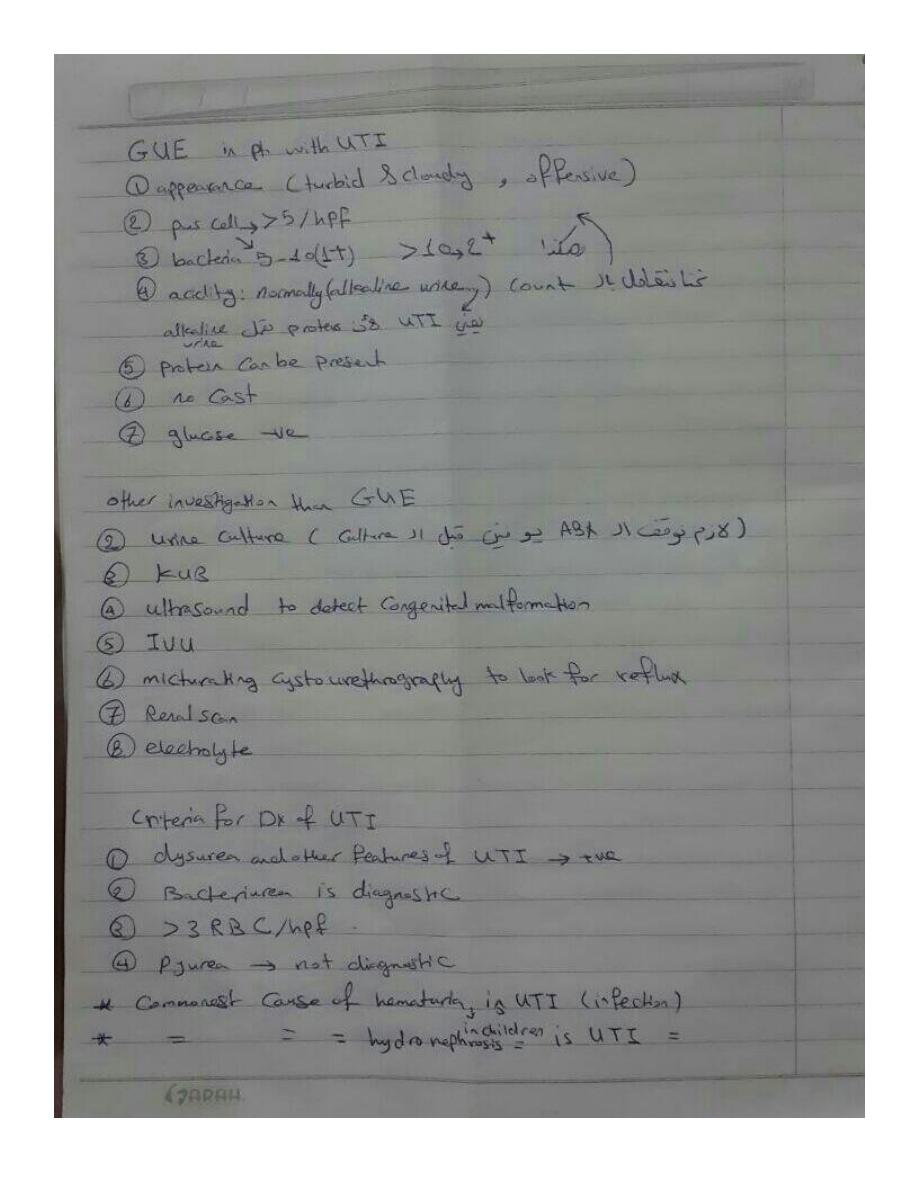 GUE in pt. with UTI
① appearance (turbid & cloudy , offensive)
② pus cell → >5/hpf
③ bacteria → 5-10(1+) >10→2+ هكذا
④ acidity: normally (alkaline urine) count نتعامل بالـ
يعني UTI proteus مثل alkaline urine
⑤ protein can be present
⑥ no cast
⑦ glucose -ve
other investigation than GUE
② urine culture ( لازم نوقف الـ ABX يومين قبل الـ culture )
③ KUB
④ ultrasound to detect congenital malformation
⑤ IVU
⑥ micturating cystourethrography to look for reflux
⑦ Renal scan
⑧ electrolyte
Criteria for Dx of UTI
① dysurea and other features of UTI → +ve
② Bacteriurea is diagnostic
③ >3 RBC/hpf
④ Pyurea → not diagnostic
* Commonest Cause of hematuria in children is UTI (infection)
* = = = hydronephrosis = is UTI =
SARAH